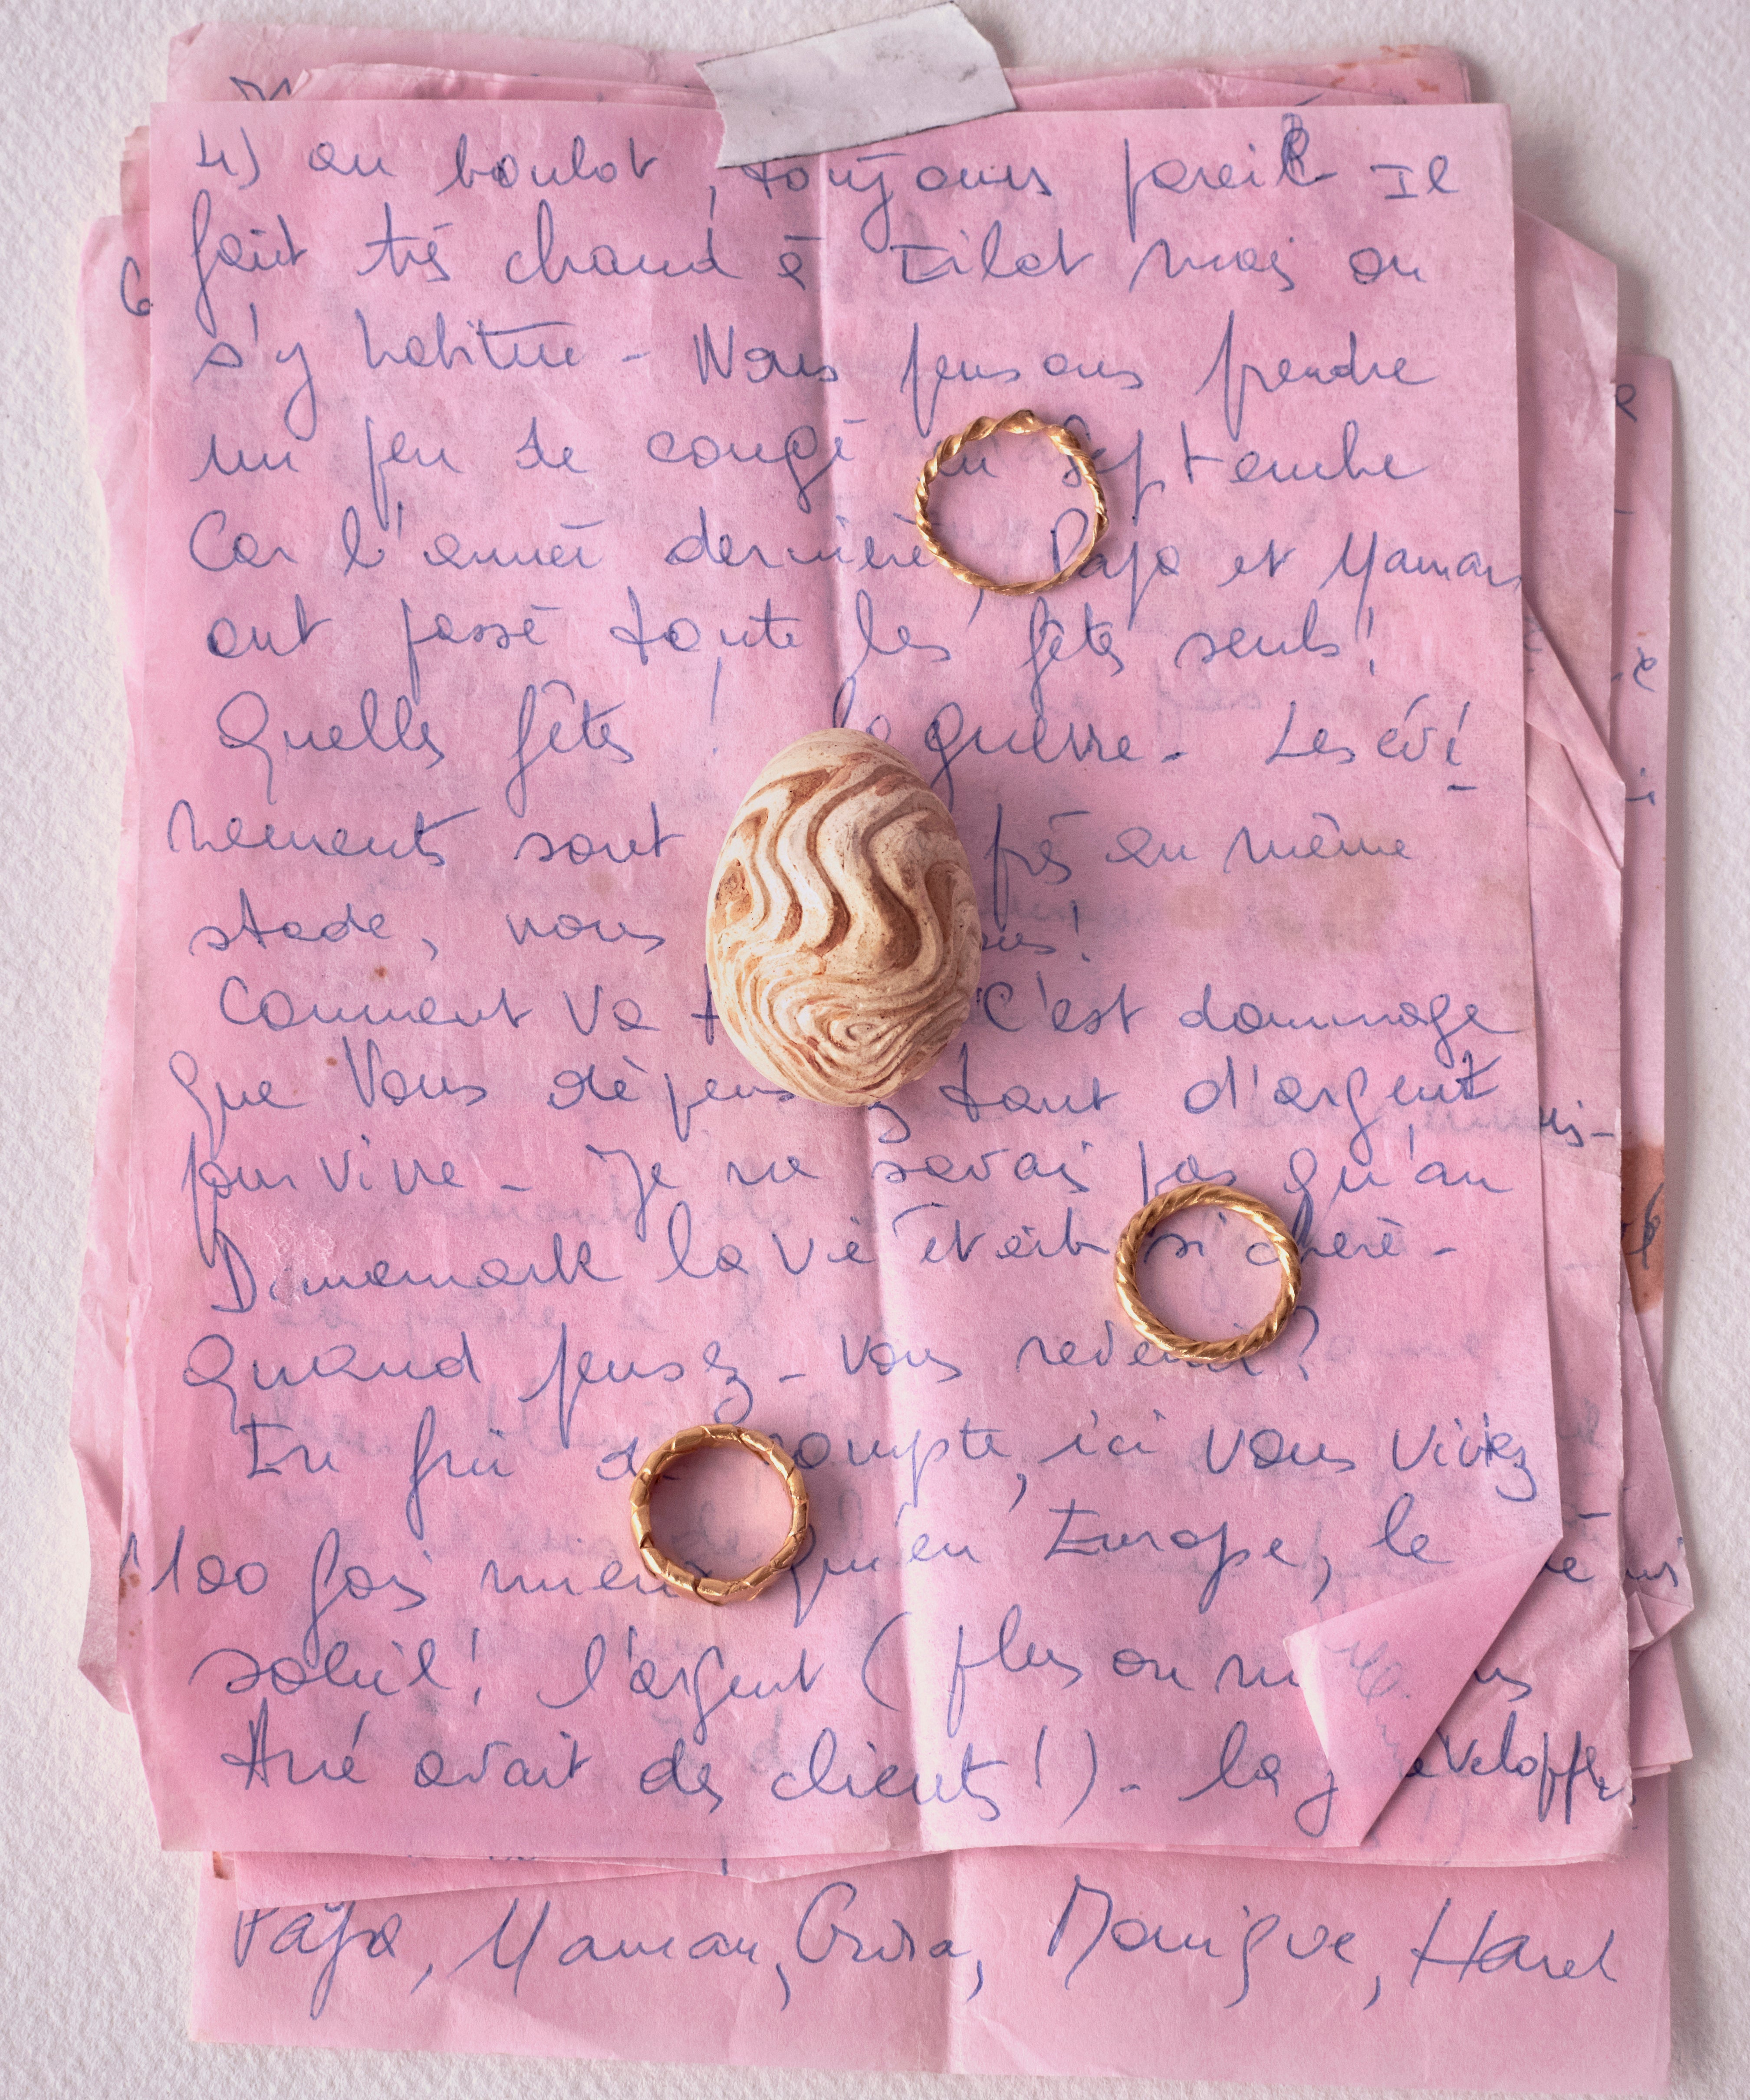 4) au boulot, toujours pareil Il
fait très chaud à Eilat mais on
s'y habitue - Nous pensons prendre
un peu de congé en Septembre
Car l'année dernière, Papa et Maman
ont passé toute les fêtes seuls!
Quelles fêtes! la guerre - Les évé
nements sont près en même
stade, nous
Comment va C'est dommage
que Vous dépensez tant d'argent
pour vivre - Je ne savais pas qu'au
Danemark la vie était si chère -
Quand pensez-vous revenir?
En fin de compte, ici vous viviez
100 fois mieux qu'en Europe, le
soleil! l'argent (plus ou
avait des clients!) - la
Papa, Maman, Monique, Harel